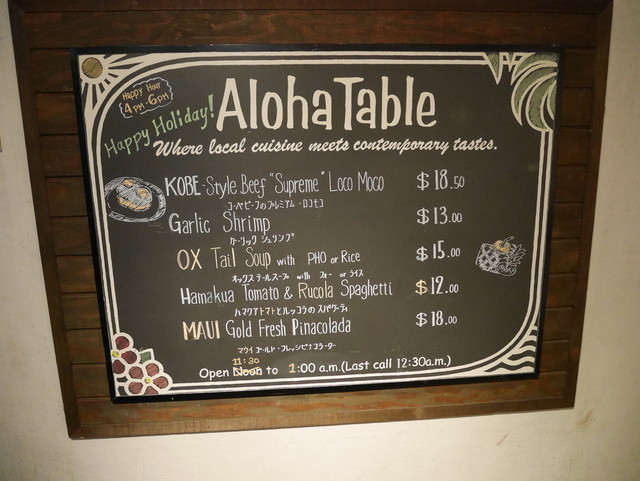 Happy Hour
4PM-6PM
Happy Holiday!
Aloha Table
Where local cuisine meets contemporary tastes.
KOBE-Style Beef "Supreme" Loco Moco $18.50
コーベビーフのプレミアム・ロコモコ
Garlic Shrimp $13.00
ガーリック シュリンプ
OX Tail Soup with PHO or Rice $15.00
オックステールスープ with フォー or ライス
Hamakua Tomato & Rucola Spaghetti $12.00
ハマクアトマトとルッコラのスパゲーティ
MAUI Gold Fresh Pinacolada $18.00
マウイゴールド・フレッシュピナコラーダ
11:30
Open Noon to 1:00 a.m.(Last call 12:30a.m.)